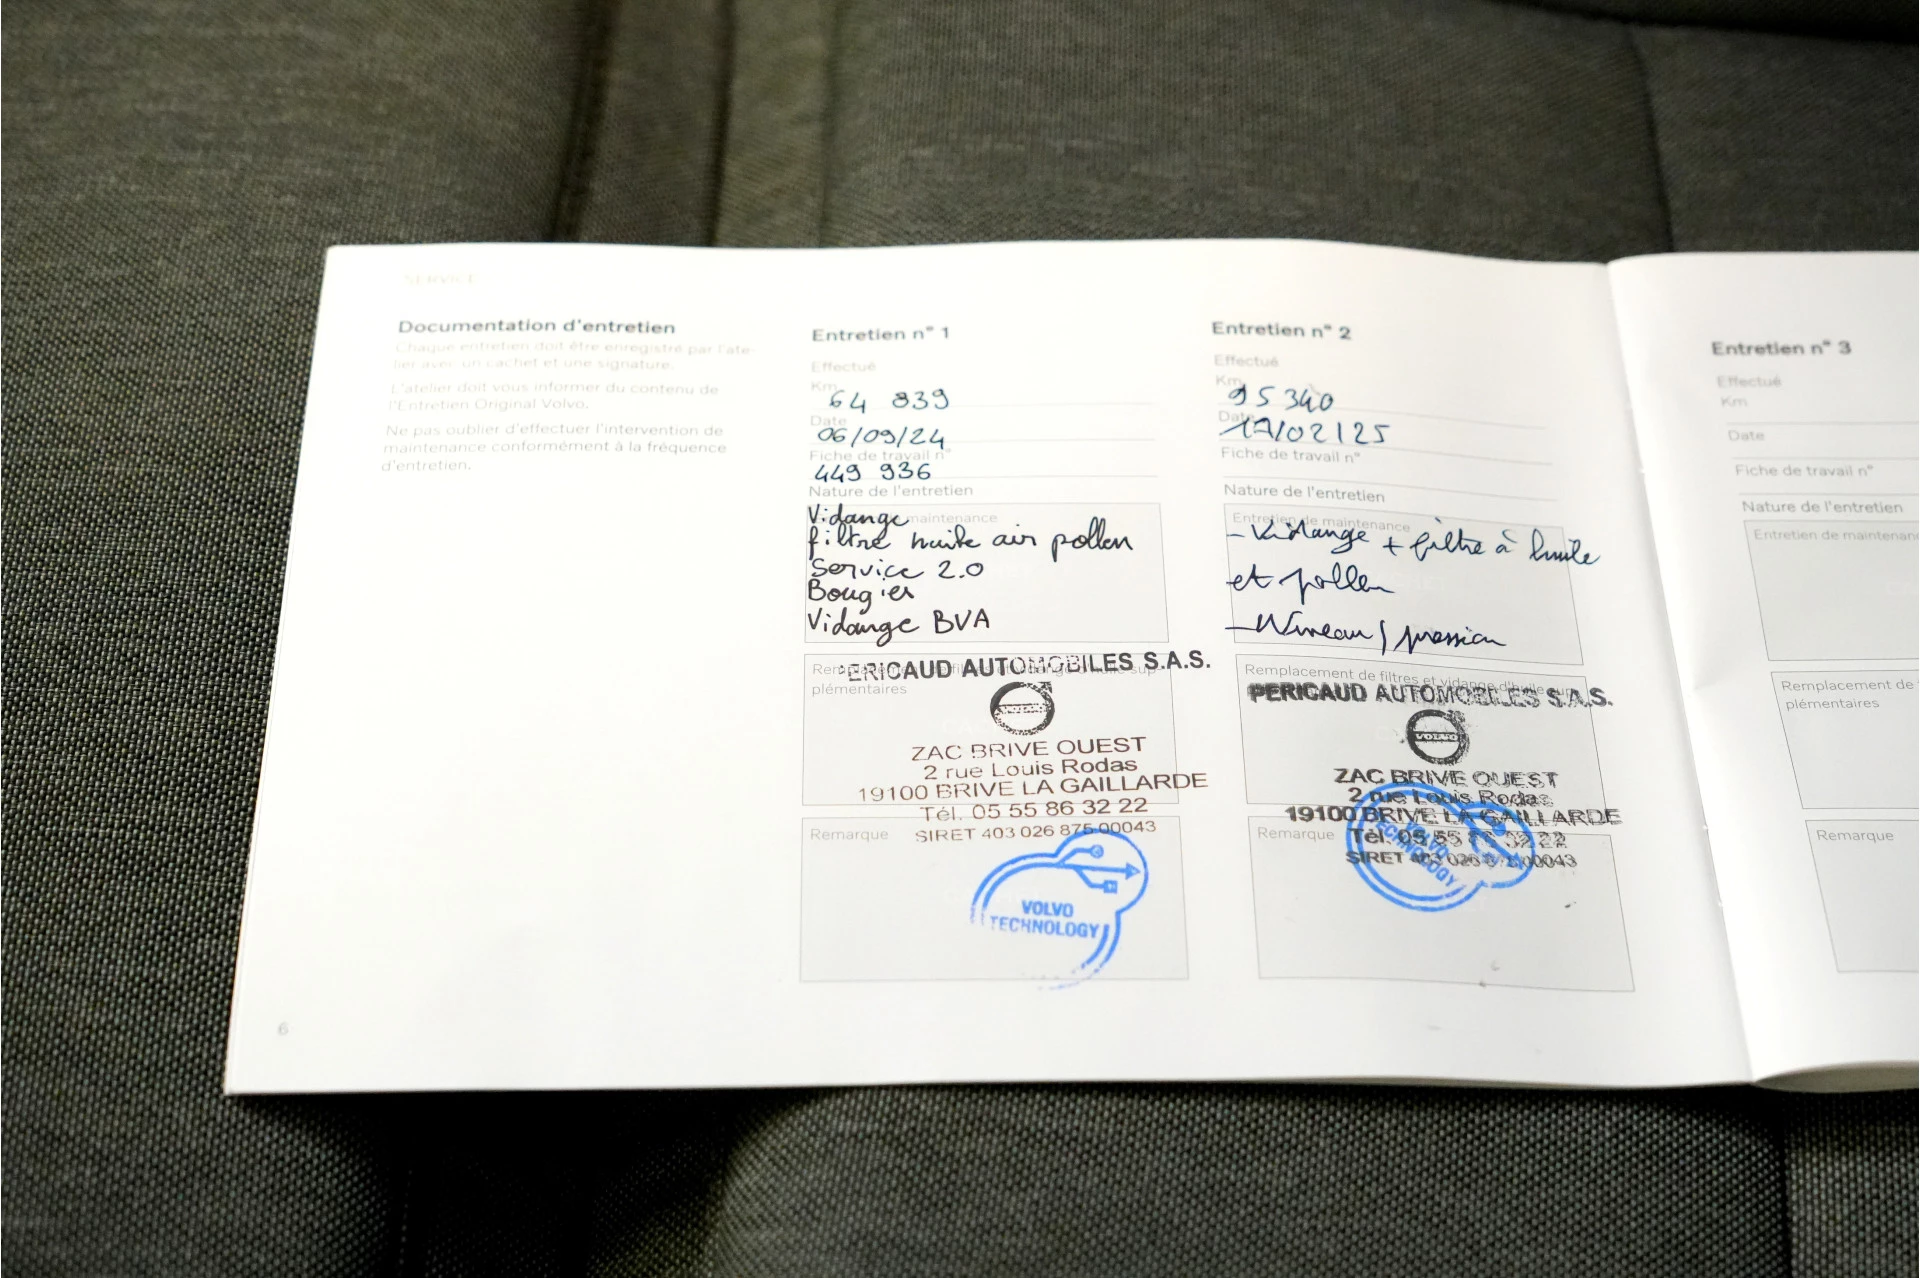 SERVICE
Documentation d'entretien
Chaque entretien doit être enregistré par l'ate-
lier avec un cachet et une signature.
L'atelier doit vous informer du contenu de
l'Entretien Original Volvo.
Ne pas oublier d'effectuer l'intervention de
maintenance conformément à la fréquence
d'entretien.
6
Entretien n° 1
Effectué
Km
64 839
Date
06/09/24
Fiche de travail n°
449 936
Nature de l'entretien
Entretien de maintenance
Vidange
filtre huile air pollen
Service 2.0
Bougies
Vidange BVA
Remplacement de filtres et vidange d'huile sup-
plémentaires
PERICAUD AUTOMOBILES S.A.S.
VOLVO
ZAC BRIVE OUEST
2 rue Louis Rodas
19100 BRIVE LA GAILLARDE
Tél. 05 55 86 32 22
SIRET 403 026 875 00043
Remarque
VOLVO
TECHNOLOGY
Entretien n° 2
Effectué
Km
95 340
Date
17/02/25
Fiche de travail n°
Nature de l'entretien
Entretien de maintenance
- Vidange + filtre à huile
et pollen
- Niveau / pression
Remplacement de filtres et vidange d'huile sup-
PERICAUD AUTOMOBILES S.A.S.
VOLVO
ZAC BRIVE OUEST
2 rue Louis Rodas
19100 BRIVE LA GAILLARDE
Tél. 05 55 86 32 22
SIRET 403 026 875 00043
Remarque
VOLVO
TECHNOLOGY
Entretien n° 3
Effectué
Km
Date
Fiche de travail n°
Nature de l'entretien
Entretien de maintenan
Remplacement de
plémentaires
Remarque